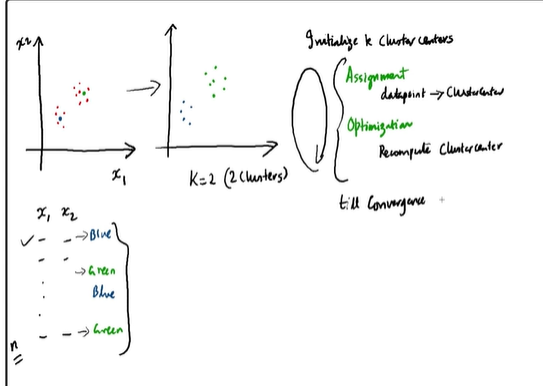 x2
x1
K=2 (2 Clusters)
Initialize k Clustercenters
Assignment
datapoint → Clustercenter
Optimization
Recompute Clustercenter
till Convergence
x1 x2
✓ – – → Blue
– –
→ Green
Blue
– – → Green
n